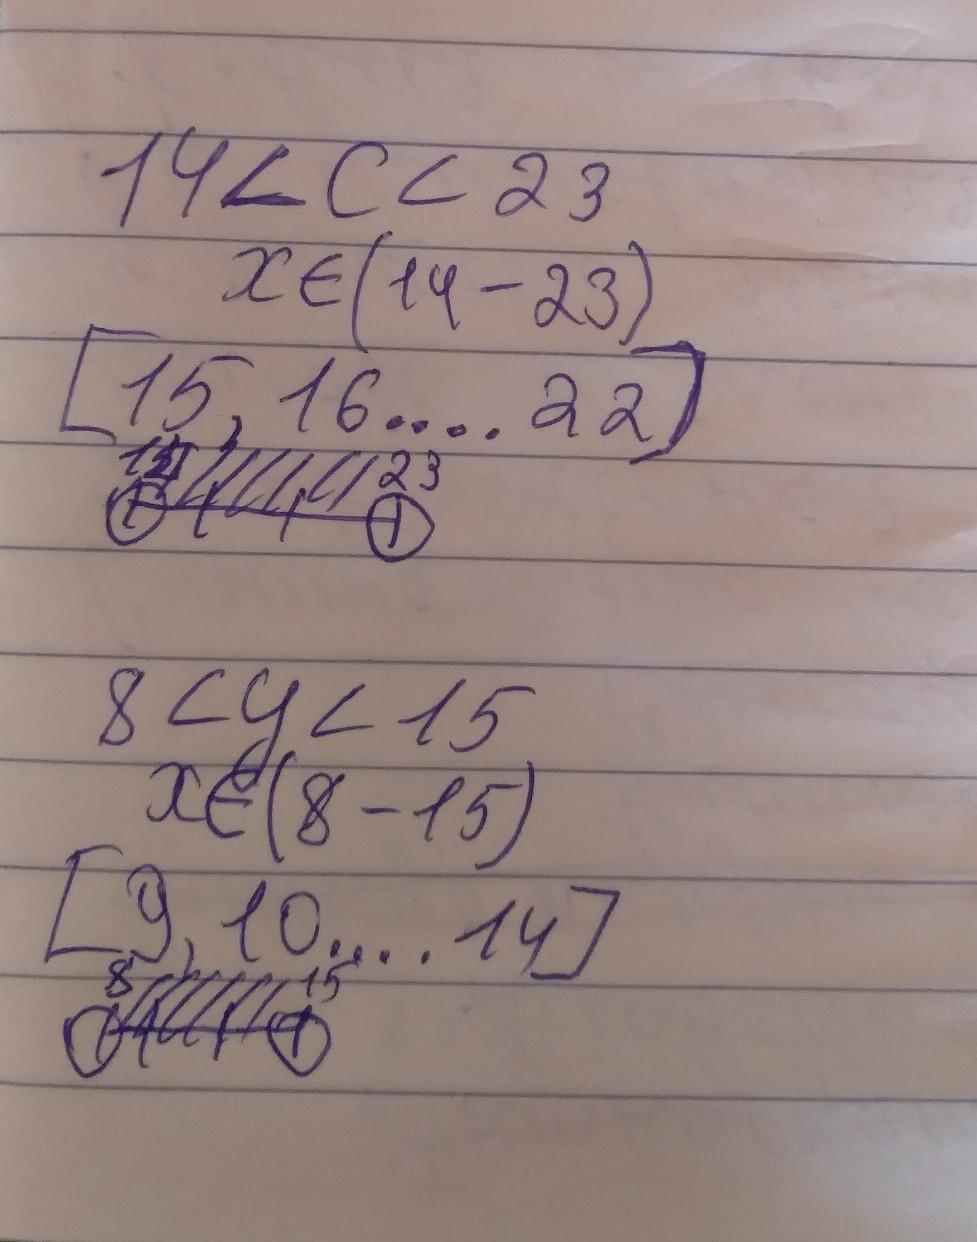 14 < C < 23
x ∈ (14 - 23)
[15, 16.... 22]
14 23
8 < y < 15
x ∈ (8 - 15)
[9, 10..... 14]
8 15